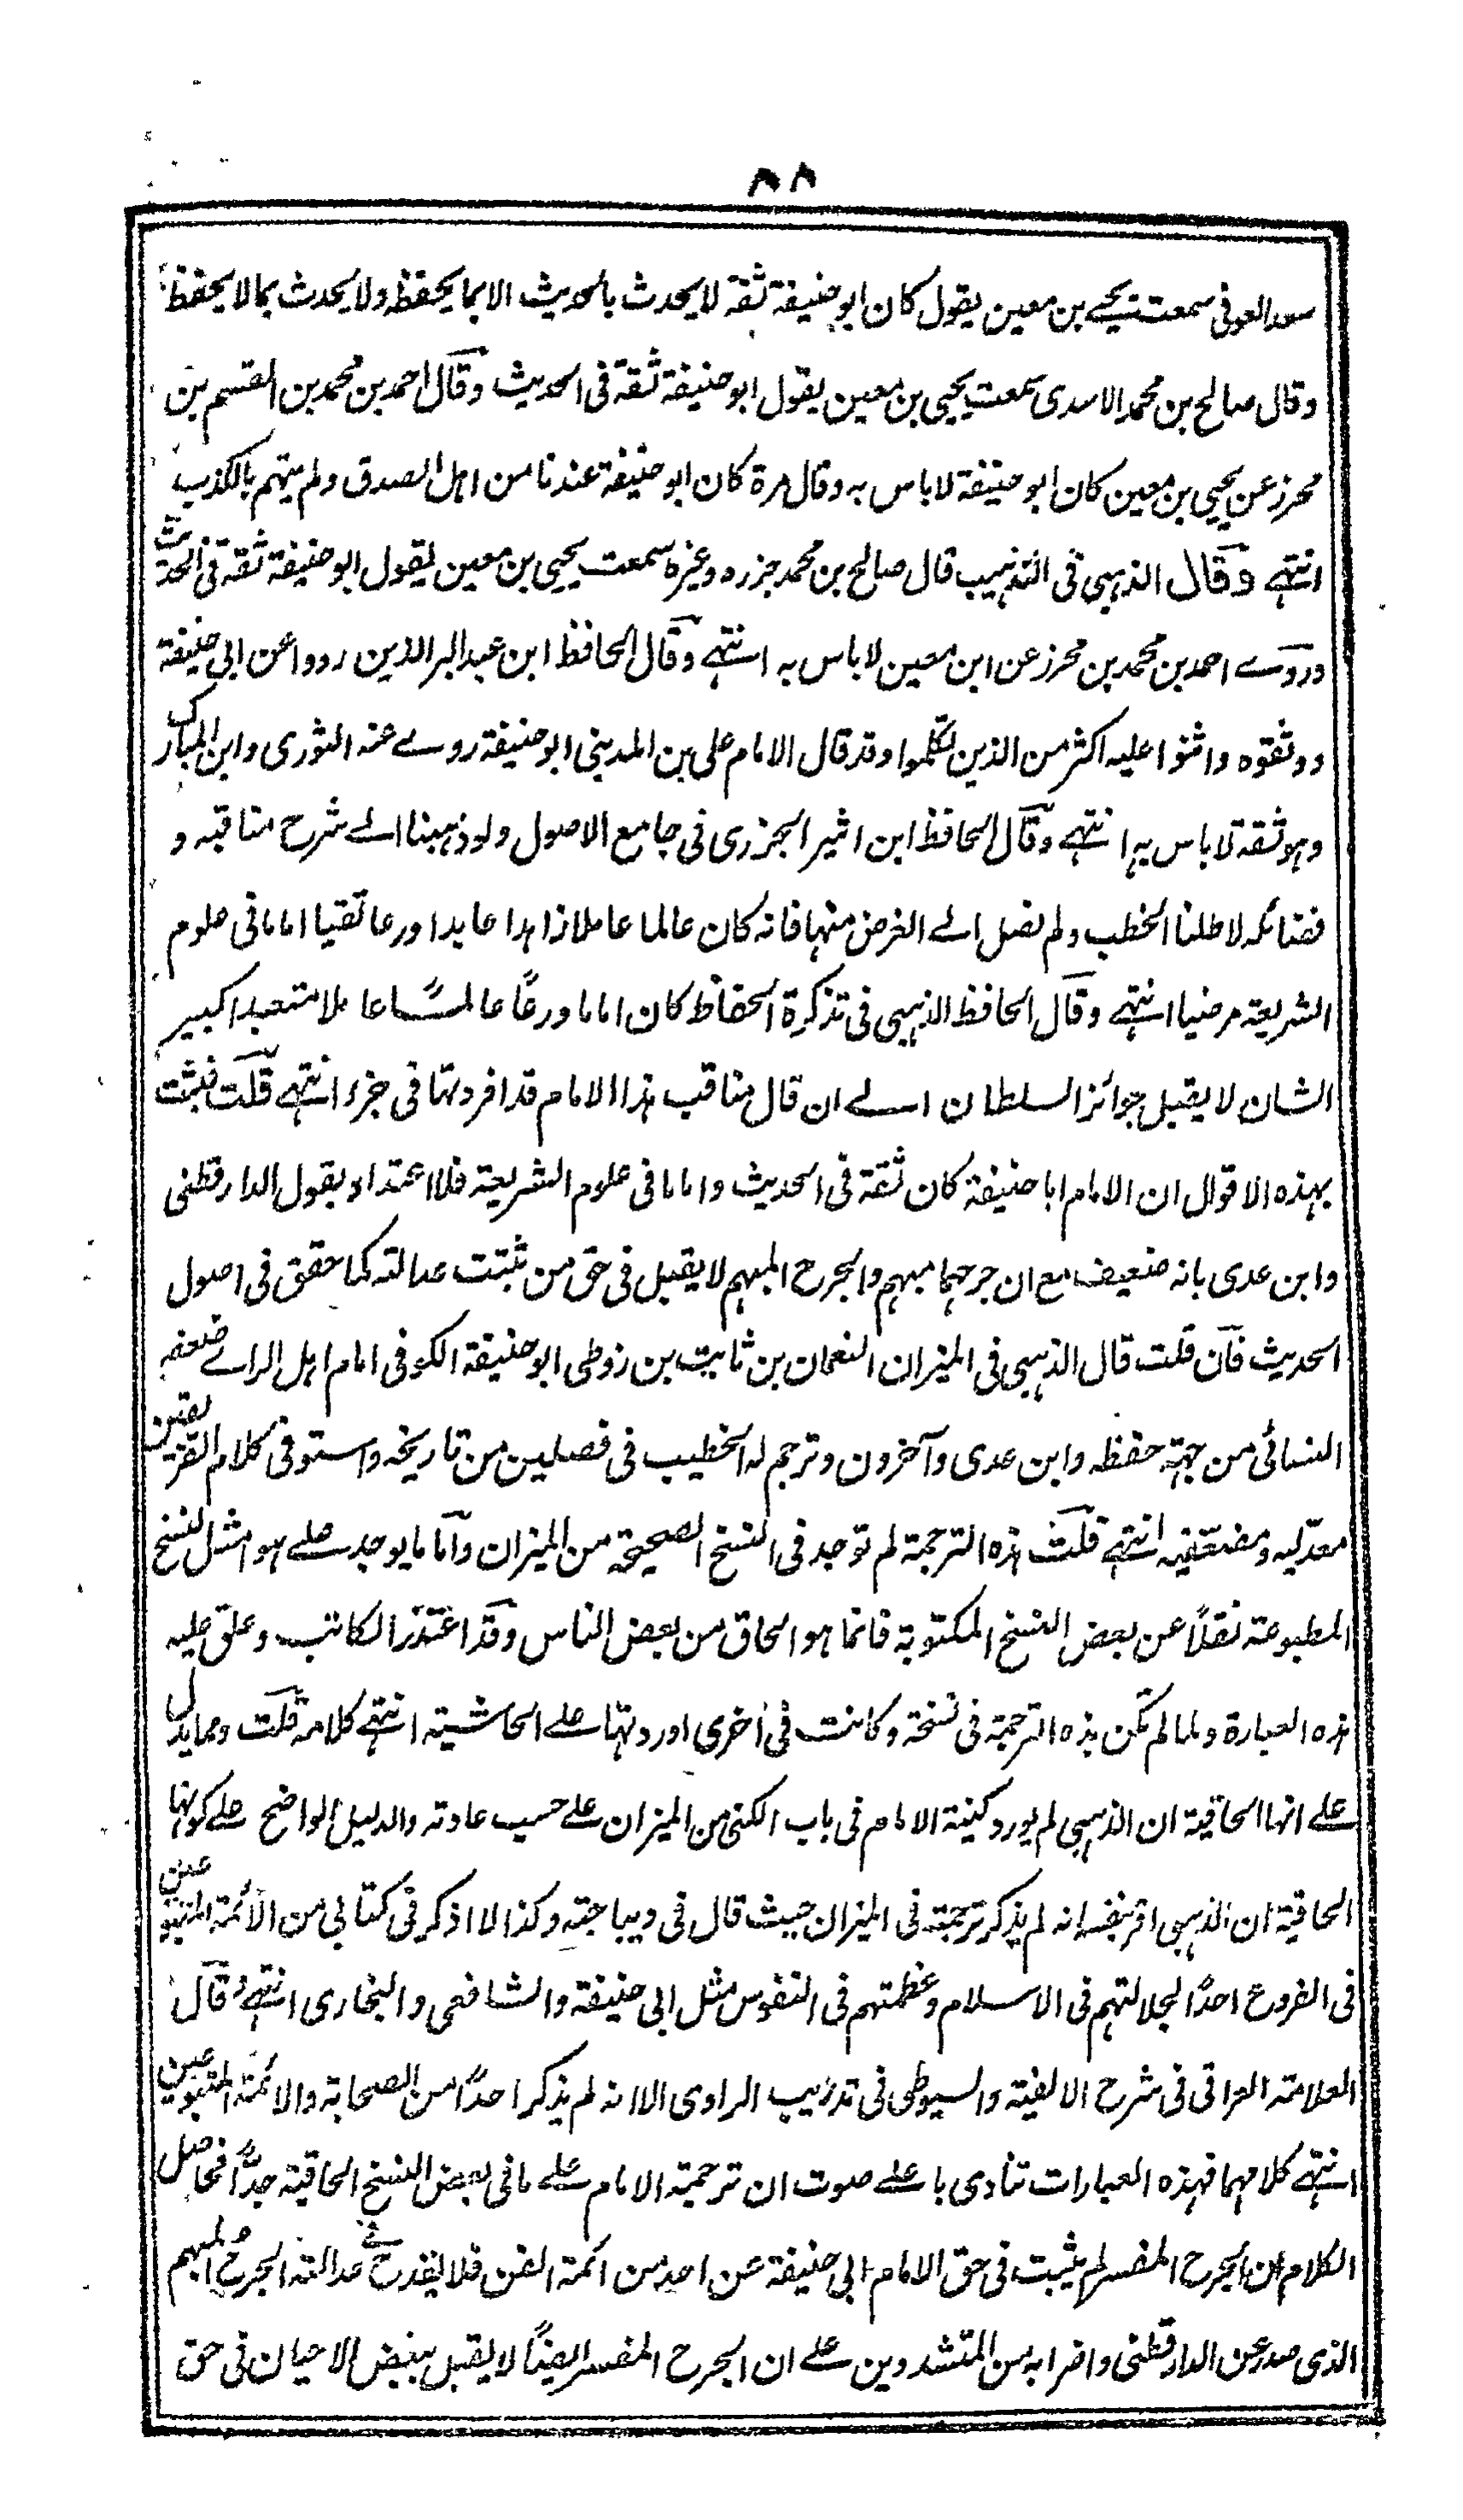 ٨٨
سعد العوفی سمعت یحیے بن معین یقول کان ابو حنیفة ثقة لا یحدث بالحدیث الا بما یحفظ ولا یحدث بما لا یحفظ
وقال صالح بن محمد الاسدی سمعت یحیی بن معین یقول ابو حنیفة ثقة فی الحدیث وقال احمد بن محمد بن القسم بن
محرز عن یحیی بن معین کان ابو حنیفة لا باس به وقال مرة کان ابو حنیفة عندنا من اهل الصدق ولم یتهم بالکذب
انتهے وقال الذهبی فی التذهیب قال صالح بن محمد جزره وغیره سمعت یحیی بن معین یقول ابو حنیفة ثقة فی الحدیث
وروے احمد بن محمد بن محرز عن ابن معین لا باس به انتهے وقال الحافظ ابن عبد البر الذین رووا عن ابی حنیفة
ووثقوه واثنوا علیه اکثر من الذین تکلموا وقد قال الامام علی بن المدینی ابو حنیفة روے عنه الثوری وابن المبارک
وهو ثقة لا باس به انتهے وقال الحافظ ابن اثیر الجزری فی جامع الاصول ولو ذهبنا الے شرح مناقبه و
فضائله لاطلنا الخطب ولم نصل الے الغرض منها فانه کان عالما عاملا زاهدا عابدا ورعا تقیا اماما فی علوم
الشریعة مرضیا انتهے وقال الحافظ الذهبی فی تذکرة الحفاظ کان اماما ورعًا عالمًا عاملا متعبدا کبیر
الشان لا یقبل جوائز السلطان الے ان قال مناقب هذا الامام قد افردتها فی جزء انتهے قلت فثبت
بهذه الاقوال ان الامام ابا حنیفة کان ثقة فی الحدیث واماما فی علوم الشریعة فلا اعتداد بقول الدارقطنی
وابن عدی بانه ضعیف مع ان جرحهما مبهم والجرح المبهم لا یقبل فی حق من ثبتت عدالته کما حقق فی اصول
الحدیث فان قلت قال الذهبی فی المیزان النعمان بن ثابت بن زوطی ابو حنیفة الکوفی امام اهل الراے ضعفه
النسائی من جهة حفظه وابن عدی وآخرون وترجم له الخطیب فی فصلین من تاریخه واستوفی کلام الفریقین
معدلیه ومضعفیه انتهے قلت هذه الترجمة لم توجد فی النسخ الصحیحة من المیزان وأما ما یوجد علے هوامش النسخ
المطبوعة نقلاً عن بعض النسخ المکتوبة فانما هو الحاق من بعض الناس وقد اعتذر الکاتب وعلق علیه
هذه العبارة ولما لم تکن هذه الترجمة فی نسخة وکانت فی اخری اوردتها علے الحاشیة انتهے کلامه قلت ومما یدل
علے انها الحاقیة ان الذهبی لم یورد کنیة الامام فی باب الکنی من المیزان علے حسب عادته والدلیل الواضح علے کونها
الحاقیة ان الذهبی اقر بنفسه انه لم یذکر ترجمته فی المیزان حیث قال فی دیباجته وکذا لا اذکر فی کتابی من الأئمة المتبوعین
فی الفروع احدًا لجلالتهم فی الاسلام وعظمتهم فی النفوس مثل ابی حنیفة والشافعی والبخاری انتهے وقال
العلامة العراقی فی شرح الالفیة والسیوطی فی تدریب الراوی الا انه لم یذکر احدًا من الصحابة والائمة المتبوعین
انتهے کلامهما فهذه العبارات تنادی باعلے صوت ان ترجمة الامام علے ما فی بعض النسخ الحاقیة جدًّا فحاصل
الکلام ان الجرح المفسر لم یثبت فی حق الامام ابی حنیفة عن احد من ائمة الفن فلا یقدح فی عدالته الجرح المبهم
الذی صدر عن الدارقطنی واضرابه من المتشددین علے ان الجرح المفسر ایضًا لا یقبل ببعض الاحیان فی حق